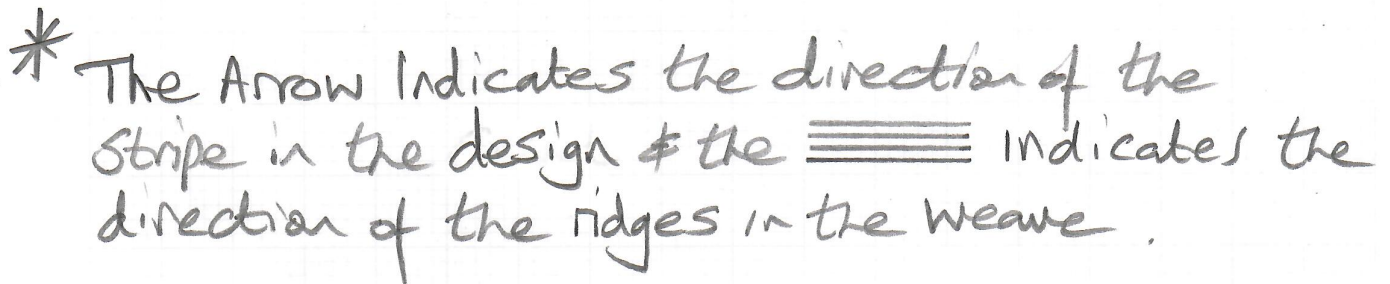 * The Arrow Indicates the direction of the
Stripe in the design & the indicates the
direction of the ridges in the weave.